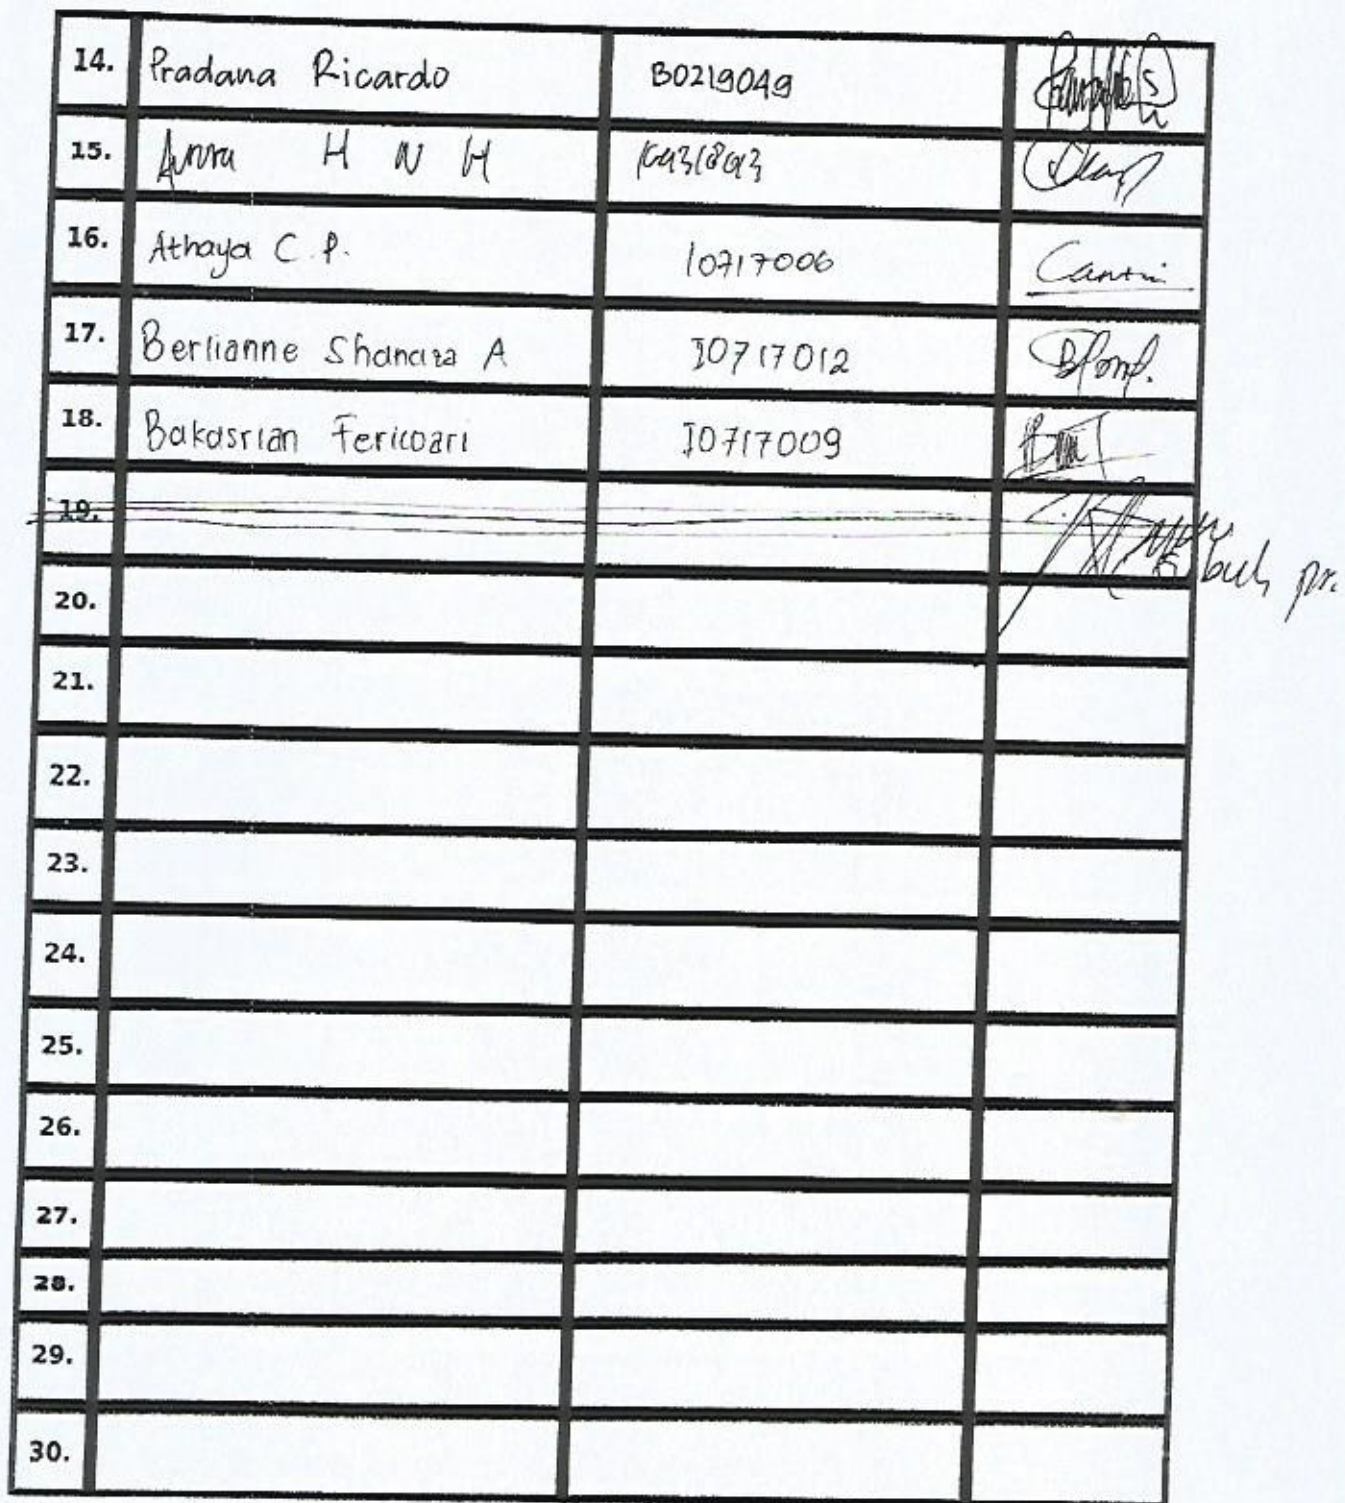 14. Pradana Ricardo B0219049
15. H N H
16. Athaya C.P. I0717006
17. Berlianne Shanaza A I0717012
18. Bakasrian Fericoari I0717009
19.
20.
21.
22.
23.
24.
25.
26.
27.
28.
29.
30.